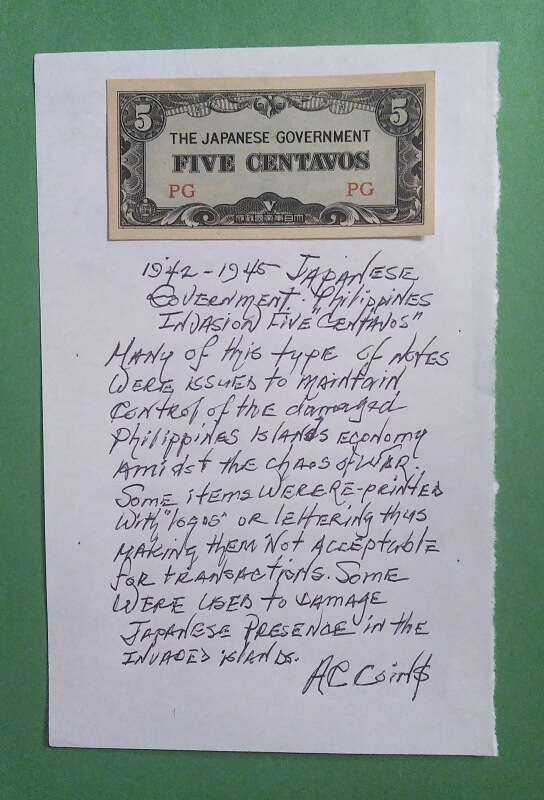 5 5
THE JAPANESE GOVERNMENT
FIVE CENTAVOS
PG PG
1942-1945 JAPANESE
GOVERNMENT. Philippines
INVASION FIVE "CENTAVOS"
MANY of this type of NOTES
WERE ISSUED to MAINTAIN
CONTROL of the damaged
Philippines Islands ECONOMY
AMIDST the CHAOS of WAR.
Some items WERE RE-PRINTED
With "logos" OR LETTERING thus
MAKING them Not ACCEPTABLE
for TRANSACTIONS. Some
WERE USED to DAMAGE
JAPANESE PRESENCE in the
INVADED iSLANDS.
AC Coin$